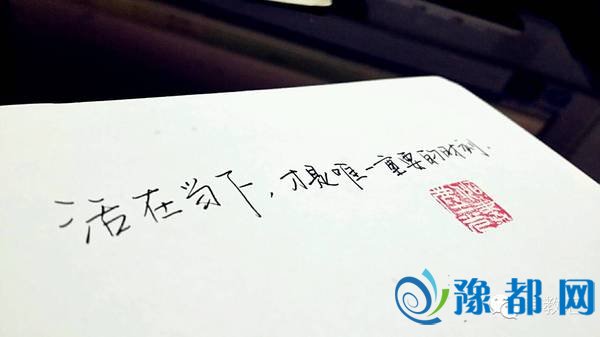 活在当下，才是唯一重要的时刻.
豫都网